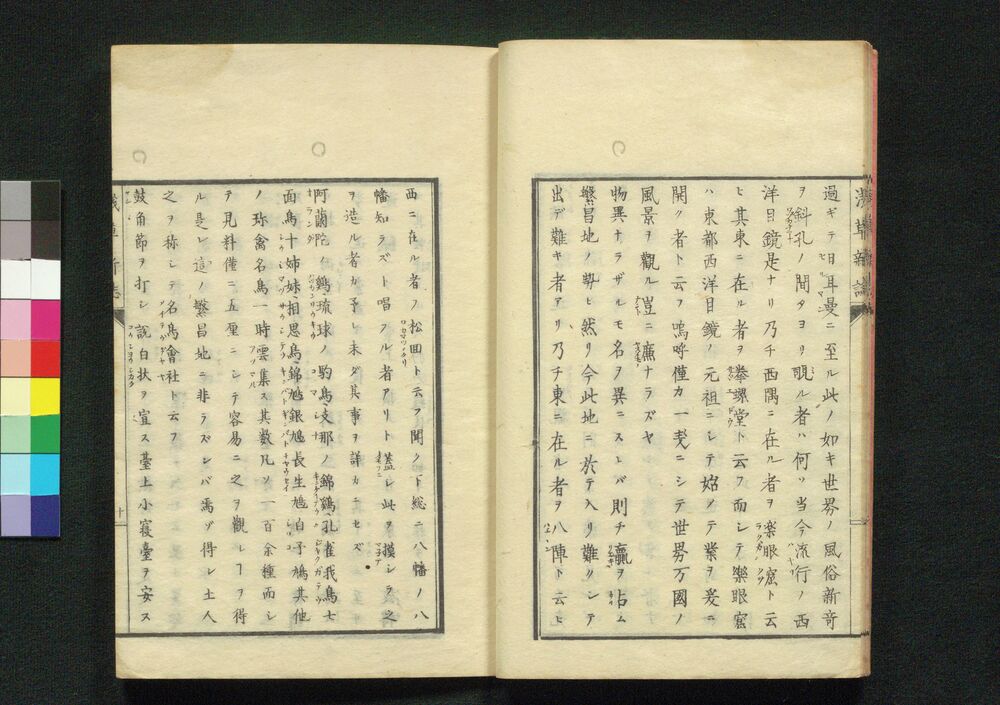 過ギテ目耳曼ニ至ル此ノ如キ世界ノ風俗新奇
ヲ斜孔ノ間タヨリ覗ル者ハ何ソ當今流行ノ西
洋目鏡是ナリ乃チ西隅ニ在ル者ヲ楽眼窟ト云
ヒ其東ニ在ル者ヲ拳螺堂ト云フ而シテ樂眼窟
ハ東都西洋目鏡ノ元祖ニシテ始メテ業ヲ爰ニ
開ク者ト云フ嗚呼僅カ一契ニシテ世界万國ノ
風景ヲ觀ル豈ニ廉ナラズヤ
物異ナラザルモ名ヲ異ニスレバ則チ贏ヲ占ム
繁昌地ノ勢ヒ然リ今此地ニ於テ入リ難クシテ
出デ難キ者アリ乃チ東ニ在ル者ヲ八陣ト云ヒ
西ニ在ル者ノ松田ト云フ聞ク下総ニ八幡ノ八
幡知ラズト唱フル者アリト蓋シ此ヲ摸シテ之
ヲ造ル者カ予レ未ダ其事ヲ詳カニセズ
阿蘭陀ノ鷄琉球ノ駒鳥支那ノ錦鷄孔雀我鳥七
面鳥十姉妹相思鳥錦鳩銀鳩長生鳩白子鳩其他
ノ珍禽名鳥一時雲集ス其数凡ソ一百余種而シ
テ見料僅ニ五厘ニシテ容易ニ之ヲ觀レヿヲ得
ル是レ這ノ繁昌地ニ非ラズンバ焉ゾ得レ土人
之ヲ称シテ名鳥會社ト云フ
鼓角節ヲ打シ説白扶ヲ宜ス臺上小寝臺ヲ安ス